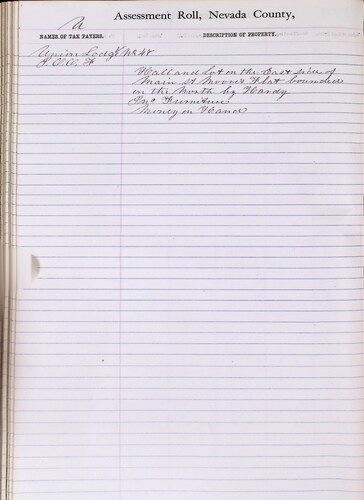 U
Assessment Roll, Nevada County,
NAMES OF TAX PAYERS.
DESCRIPTION OF PROPERTY.
Union Lodge No
I.O.O.F
Hall and Lot on the East side of
Main St Moores Flat bounded
on the North by Hardy
Furniture
Money on Hand